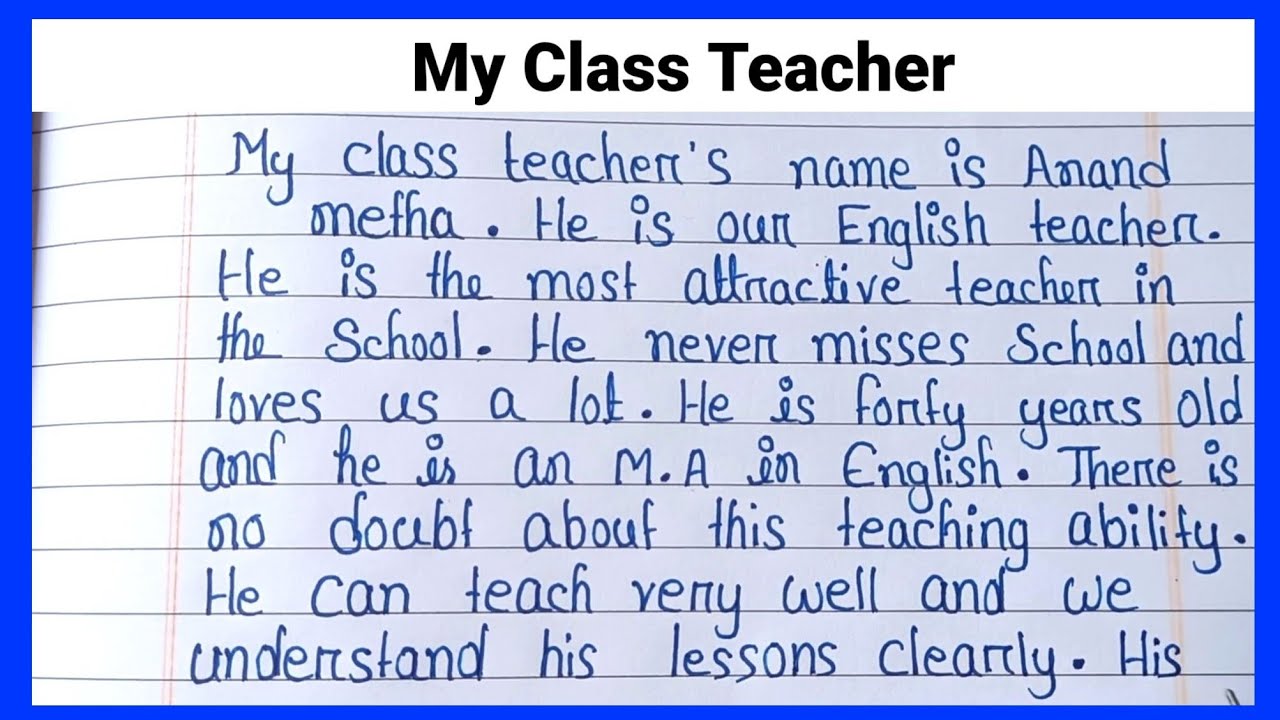 My Class Teacher
My class teacher's name is Anand
metha. He is our English teacher.
He is the most attractive teacher in
the School. He never misses School and
loves us a lot. He is forty years old
and he is an M.A in English. There is
no doubt about this teaching ability.
He can teach very well and we
understand his lessons clearly. His